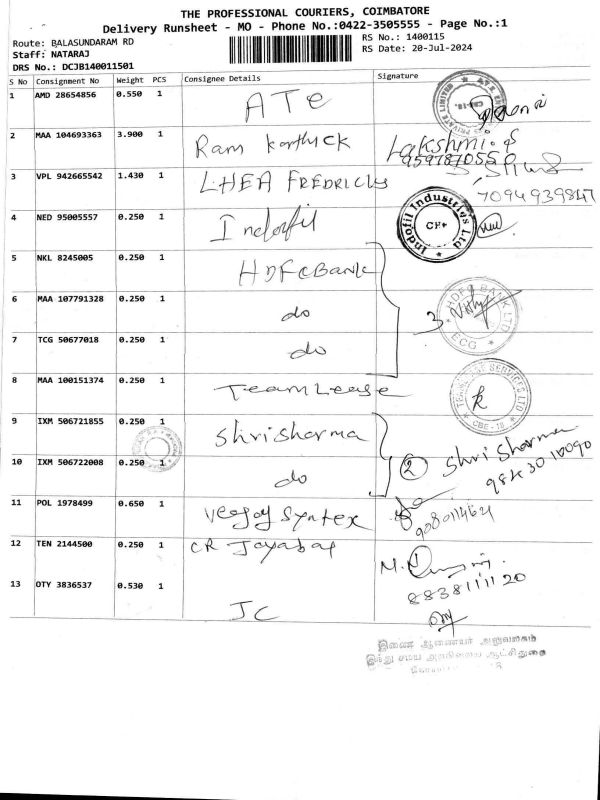 THE PROFESSIONAL COURIERS, COIMBATORE
Delivery Runsheet - MO - Phone No.:0422-3505555 - Page No.:1
Route: BALASUNDARAM RD
RS No.: 1400115
Staff: NATARAJ
RS Date: 20-Jul-2024
DRS No.: DCJB140011501
S No Consignment No Weight PCS Consignee Details Signature
1 AMD 28654856 0.550 1 ATE
2 MAA 104693363 3.900 1 Ram Karthick Lakshmi
3 VPL 942665542 1.430 1 LHEA FREDRICKS
7094939847
4 NED 95005557 0.250 1 Indofil
Indofil Industries Ltd
5 NKL 8245005 0.250 1 HDFC Bank
6 MAA 107791328 0.250 1 do 3
HDFC BANK LTD
ECG
7 TCG 50677018 0.250 1 do
8 MAA 100151374 0.250 1 TeamLease
CBE-18
9 IXM 506721855 0.250 1 Shri Sharma
10 IXM 506722008 0.250 1 do 2 Shri Sharma
9843010090
11 POL 1978499 0.650 1 Veejay Syntex
12 TEN 2144500 0.250 1 CR
13 OTY 3836537 0.530 1 JC
8838111120
இணை ஆணையர் அலுவலகம்
இந்து சமய அறநிலைய ஆட்சிதுறை